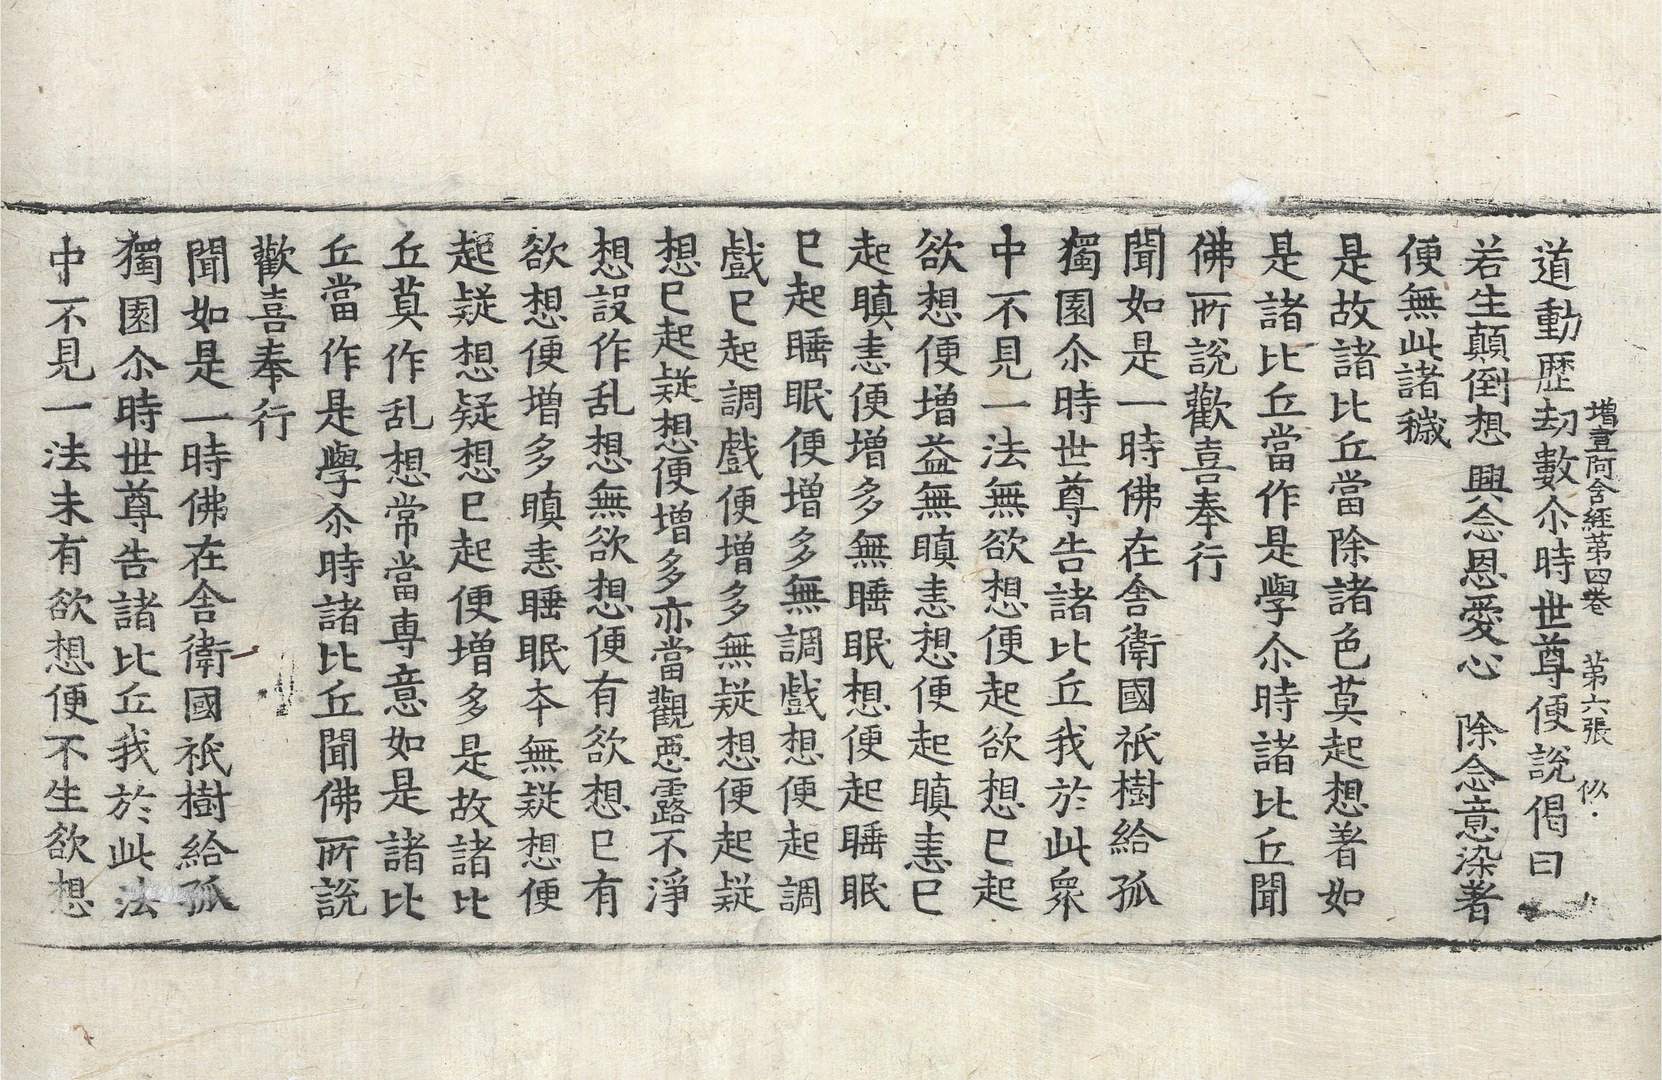 增壹阿含経苐四卷　苐六張　似
道動歷劫數尒時世尊便說偈曰
若生顛倒想　興念恩愛心　除念意染著
便無此諸穢
是故諸比丘當除諸色莫起想著如
是諸比丘當作是學尒時諸比丘聞
佛所說歡喜奉行
聞如是一時佛在舎衛國祇樹給孤
獨園尒時世尊告諸比丘我於此衆
中不見一法無欲想便起欲想已起
欲想便增益無瞋恚想便起瞋恚已
起瞋恚便增多無睡眠想便起睡眠
已起睡眠便增多無調戲想便起調
戲已起調戲便增多無疑想便起疑
想已起疑想便增多亦當觀惡露不淨
想設作乱想無欲想便有欲想已有
欲想便增多瞋恚睡眠夲無疑想便
起疑想疑想已起便增多是故諸比
丘莫作乱想常當専意如是諸比
丘當作是學尒時諸比丘聞佛所說
歡喜奉行
聞如是一時佛在舎衛國祇樹給孤
獨園尒時世尊告諸比丘我於此法
中不見一法未有欲想便不生欲想